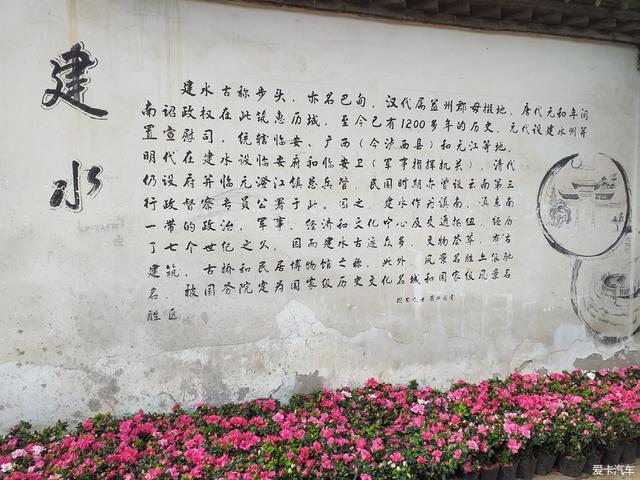 建水
建水古称步头，亦名巴甸，汉代属益州郡毋掇地，唐代元和年间
南诏政权在此筑惠历城，至今已有1200多年的历史，元代设建水州等
置宣慰司，统辖临安、广西（今泸西县）和元江等地，
明代在建水设临安府和临安卫（军事指挥机关），清代
仍设府并临元澄江镇总兵管，民国时期亦曾设云南第三
行政督察专员公署于此，因之，建水作为滇南、滇东南
一带的政治、军事、经济和文化中心及交通枢纽，经历
了七个世纪之久，因而建水古迹众多，文物荟萃，有古
建筑、古桥和民居博物馆之称，此外，风景名胜亦驰
名，被国务院定为国家级历史文化名城和国家级风景名
胜区。
爱卡汽车